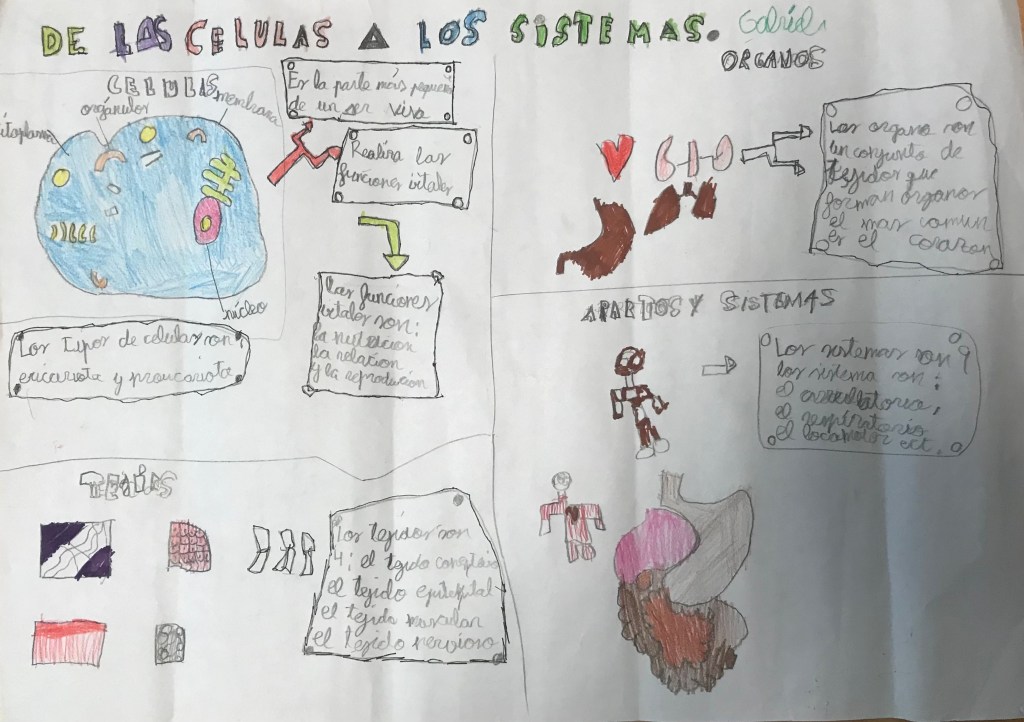 DE LAS CELULAS A LOS SISTEMAS.
Gabriel
CELULAS
itoplama
orgánulos
membrana
núcleo
Es la parte más pequeña
de un ser vivo
Realiza las
funciones vitales
Las funciones
vitales son:
la nutricion
la relacion
y la reproducion
Los tipos de celulas son
eucariota y proucariota
ORGANOS
Los organo son
un conjunto de
tejidos que
forman órganos
el mas comun
es el corazon
TEJIAS
Los tejidos son
4: el tejido
el tejido
el tejido muscular
el tejido nervioso
APARTOS Y SISTEMAS
Los sistemas son 9
los sistema son:
el
el respiratorio
el locomotor ect.